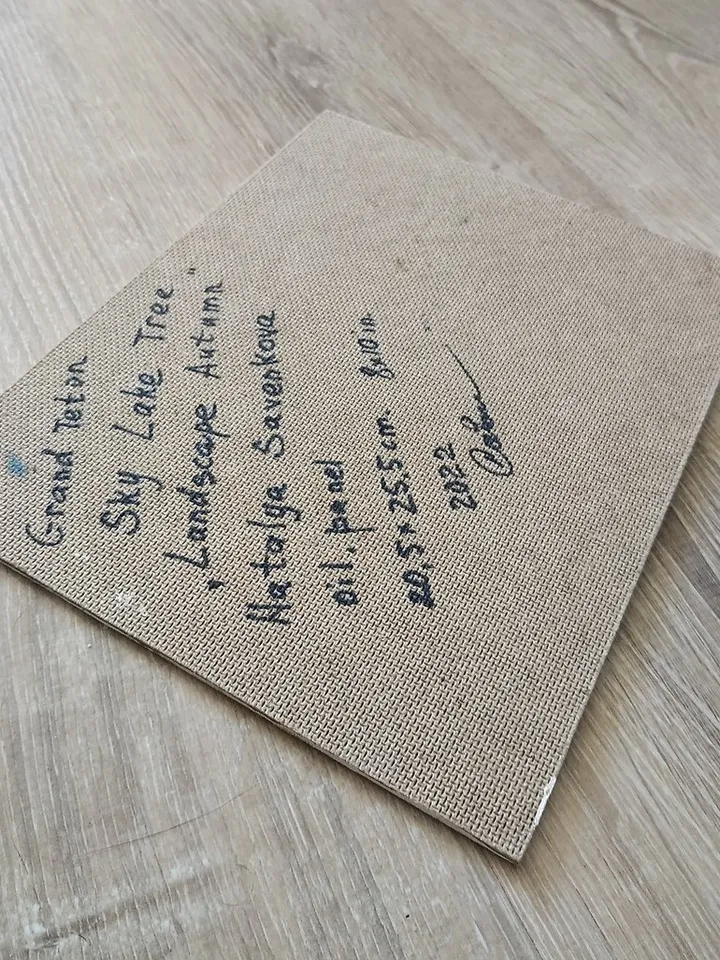 Grand Teton
Sky Lake Tree
„Landscape Autumn"
Natalya Savenkova
oil, panel
20,5 x 25.5 cm. 8x10 in
2022